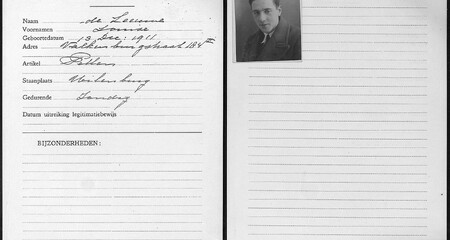 Naam de Leeuwe
Voornamen
Geboortedatum 13 Dec: 1911
Adres Valkenburgstraat 184 II
Artikel
Staanplaats Uilenburg
Gedurende Zondag
Datum uitreiking legitimatiebewijs
BIJZONDERHEDEN: